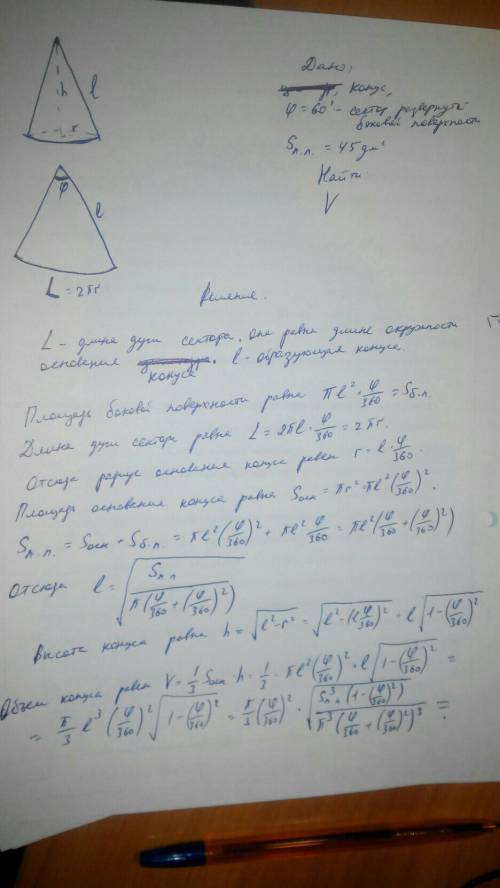 h
l
r
Дано:
конус,
φ = 60° - сектор развертки
боковой поверхности
Sп.п. = 45 дм²
Найти:
V
φ
l
L = 2πr
Решение.
L - длина дуги сектора, она равна длине окружности
основания конуса. l - образующая конуса.
Площадь боковой поверхности равна πl² · φ/360 = Sб.п.
Длина дуги сектора равна L = 2πl · φ/360 = 2πr.
Отсюда радиус основания конуса равен r = l · φ/360
Площадь основания конуса равна Sосн = πr² = πl²(φ/360)².
Sп.п. = Sосн + Sб.п. = πl²(φ/360)² + πl² φ/360 = πl²(φ/360 + (φ/360)²)
Отсюда l = √(Sп.п / π(φ/360 + (φ/360)²))
Высота конуса равна h = √(l² - r²) = √(l² - (l φ/360)²) = l √(1 - (φ/360)²)
Объем конуса равен V = 1/3 Sосн · h = 1/3 · πl²(φ/360)² · l √(1 - (φ/360)²) =
= π/3 l³ (φ/360)² √(1 - (φ/360)²) = π/3 (φ/360)² · √(Sп.п³ (1 - (φ/360)²) / π³(φ/360 + (φ/360)²)³) =